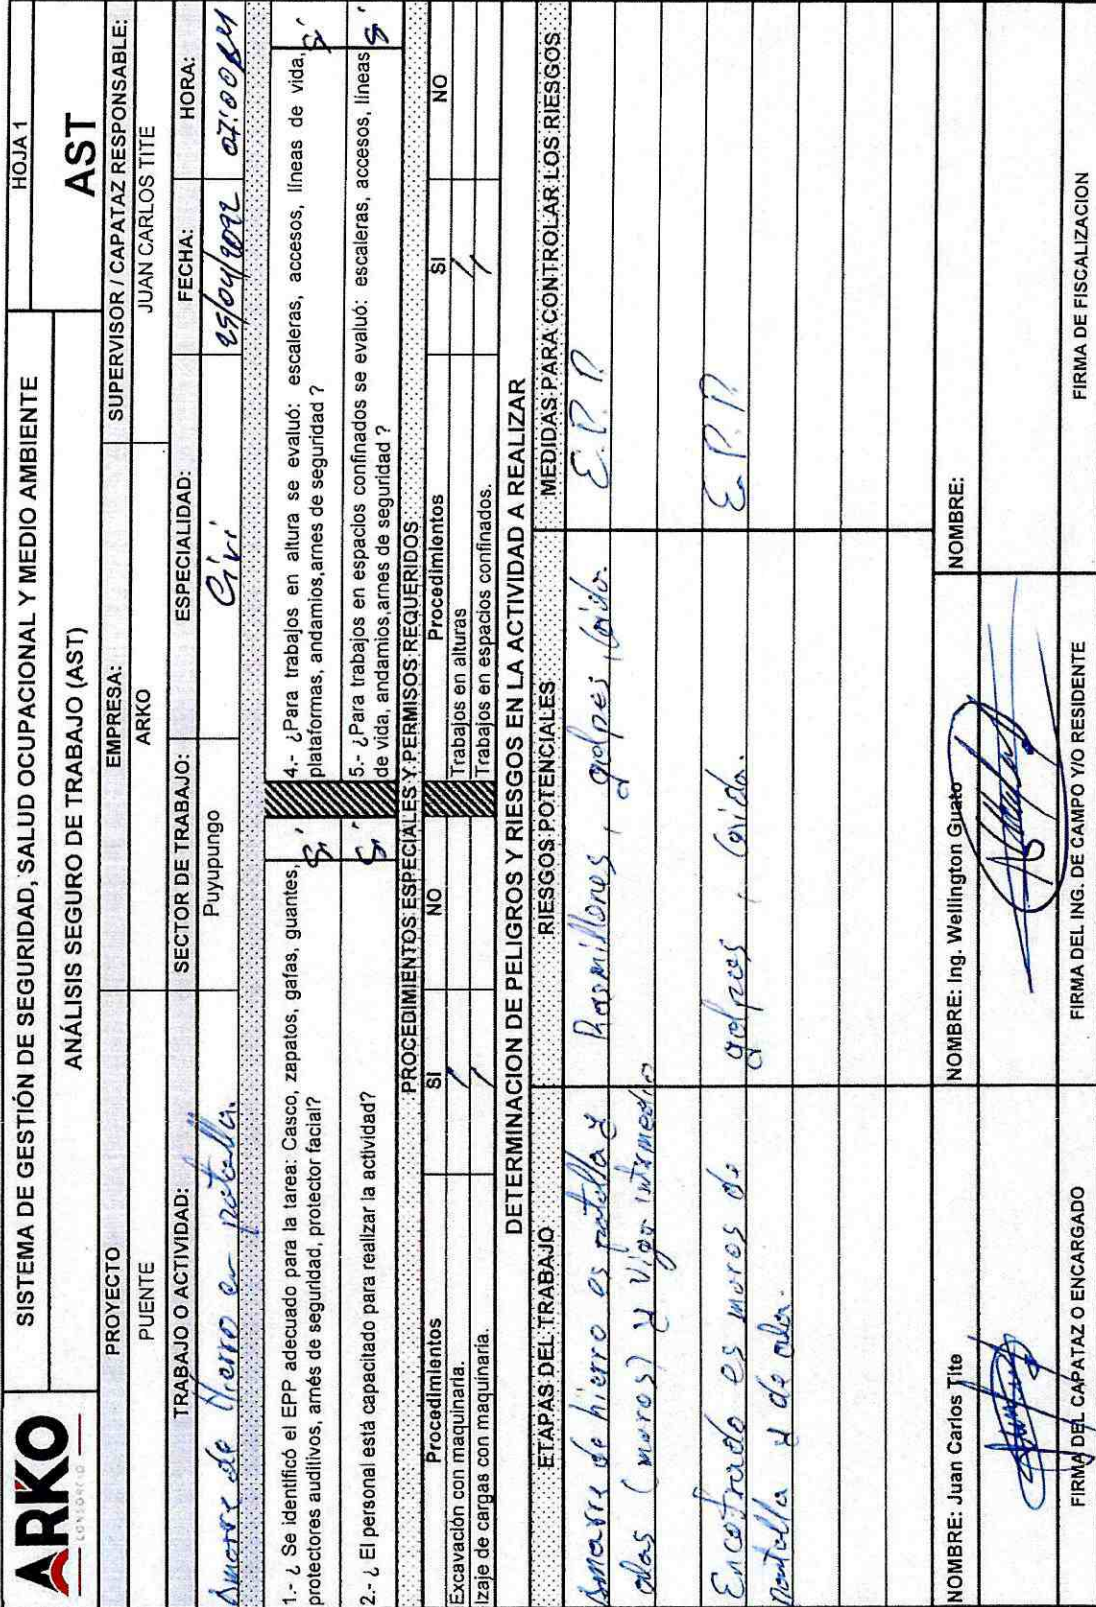 ARKO
CONSORCIO
SISTEMA DE GESTIÓN DE SEGURIDAD, SALUD OCUPACIONAL Y MEDIO AMBIENTE
HOJA 1
ANÁLISIS SEGURO DE TRABAJO (AST)
AST
PROYECTO
EMPRESA:
SUPERVISOR / CAPATAZ RESPONSABLE:
PUENTE
ARKO
JUAN CARLOS TITE
TRABAJO O ACTIVIDAD:
SECTOR DE TRABAJO:
ESPECIALIDAD:
FECHA:
HORA:
Amarre de hierro en patalla.
Puyupungo
Civi
07:00
1.- ¿ Se identificó el EPP adecuado para la tarea: Casco, zapatos, gafas, guantes,
protectores auditivos, arnés de seguridad, protector facial?
Si
4.- ¿Para trabajos en altura se evaluó: escaleras, accesos, líneas de vida,
plataformas, andamios,arnes de seguridad ?
Si
2.- ¿ El personal está capacitado para realizar la actividad?
Si
5.- ¿Para trabajos en espacios confinados se evaluó: escaleras, accesos, líneas
de vida, andamios,arnes de seguridad ?
Si
PROCEDIMIENTOS ESPECIALES Y PERMISOS REQUERIDOS
Procedimientos
SI
NO
Procedimientos
SI
NO
Excavación con maquinaria.
Trabajos en alturas
Izaje de cargas con maquinaria.
Trabajos en espacios confinados.
DETERMINACION DE PELIGROS Y RIESGOS EN LA ACTIVIDAD A REALIZAR
ETAPAS DEL TRABAJO
RIESGOS POTENCIALES
MEDIDAS PARA CONTROLAR LOS RIESGOS
Amarre de hierro es patalla y
Rasmillones, golpes,
E.P.P.
alas (muros) y viga intermedia
Encofrado es muros de
golpes,
E.P.P.
pantalla y de alas.
NOMBRE: Juan Carlos Tite
NOMBRE: Ing. Wellington Guato
NOMBRE:
FIRMA DEL CAPATAZ O ENCARGADO
FIRMA DEL ING. DE CAMPO Y/O RESIDENTE
FIRMA DE FISCALIZACION